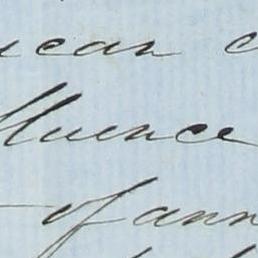 ican c
fluence
of ann